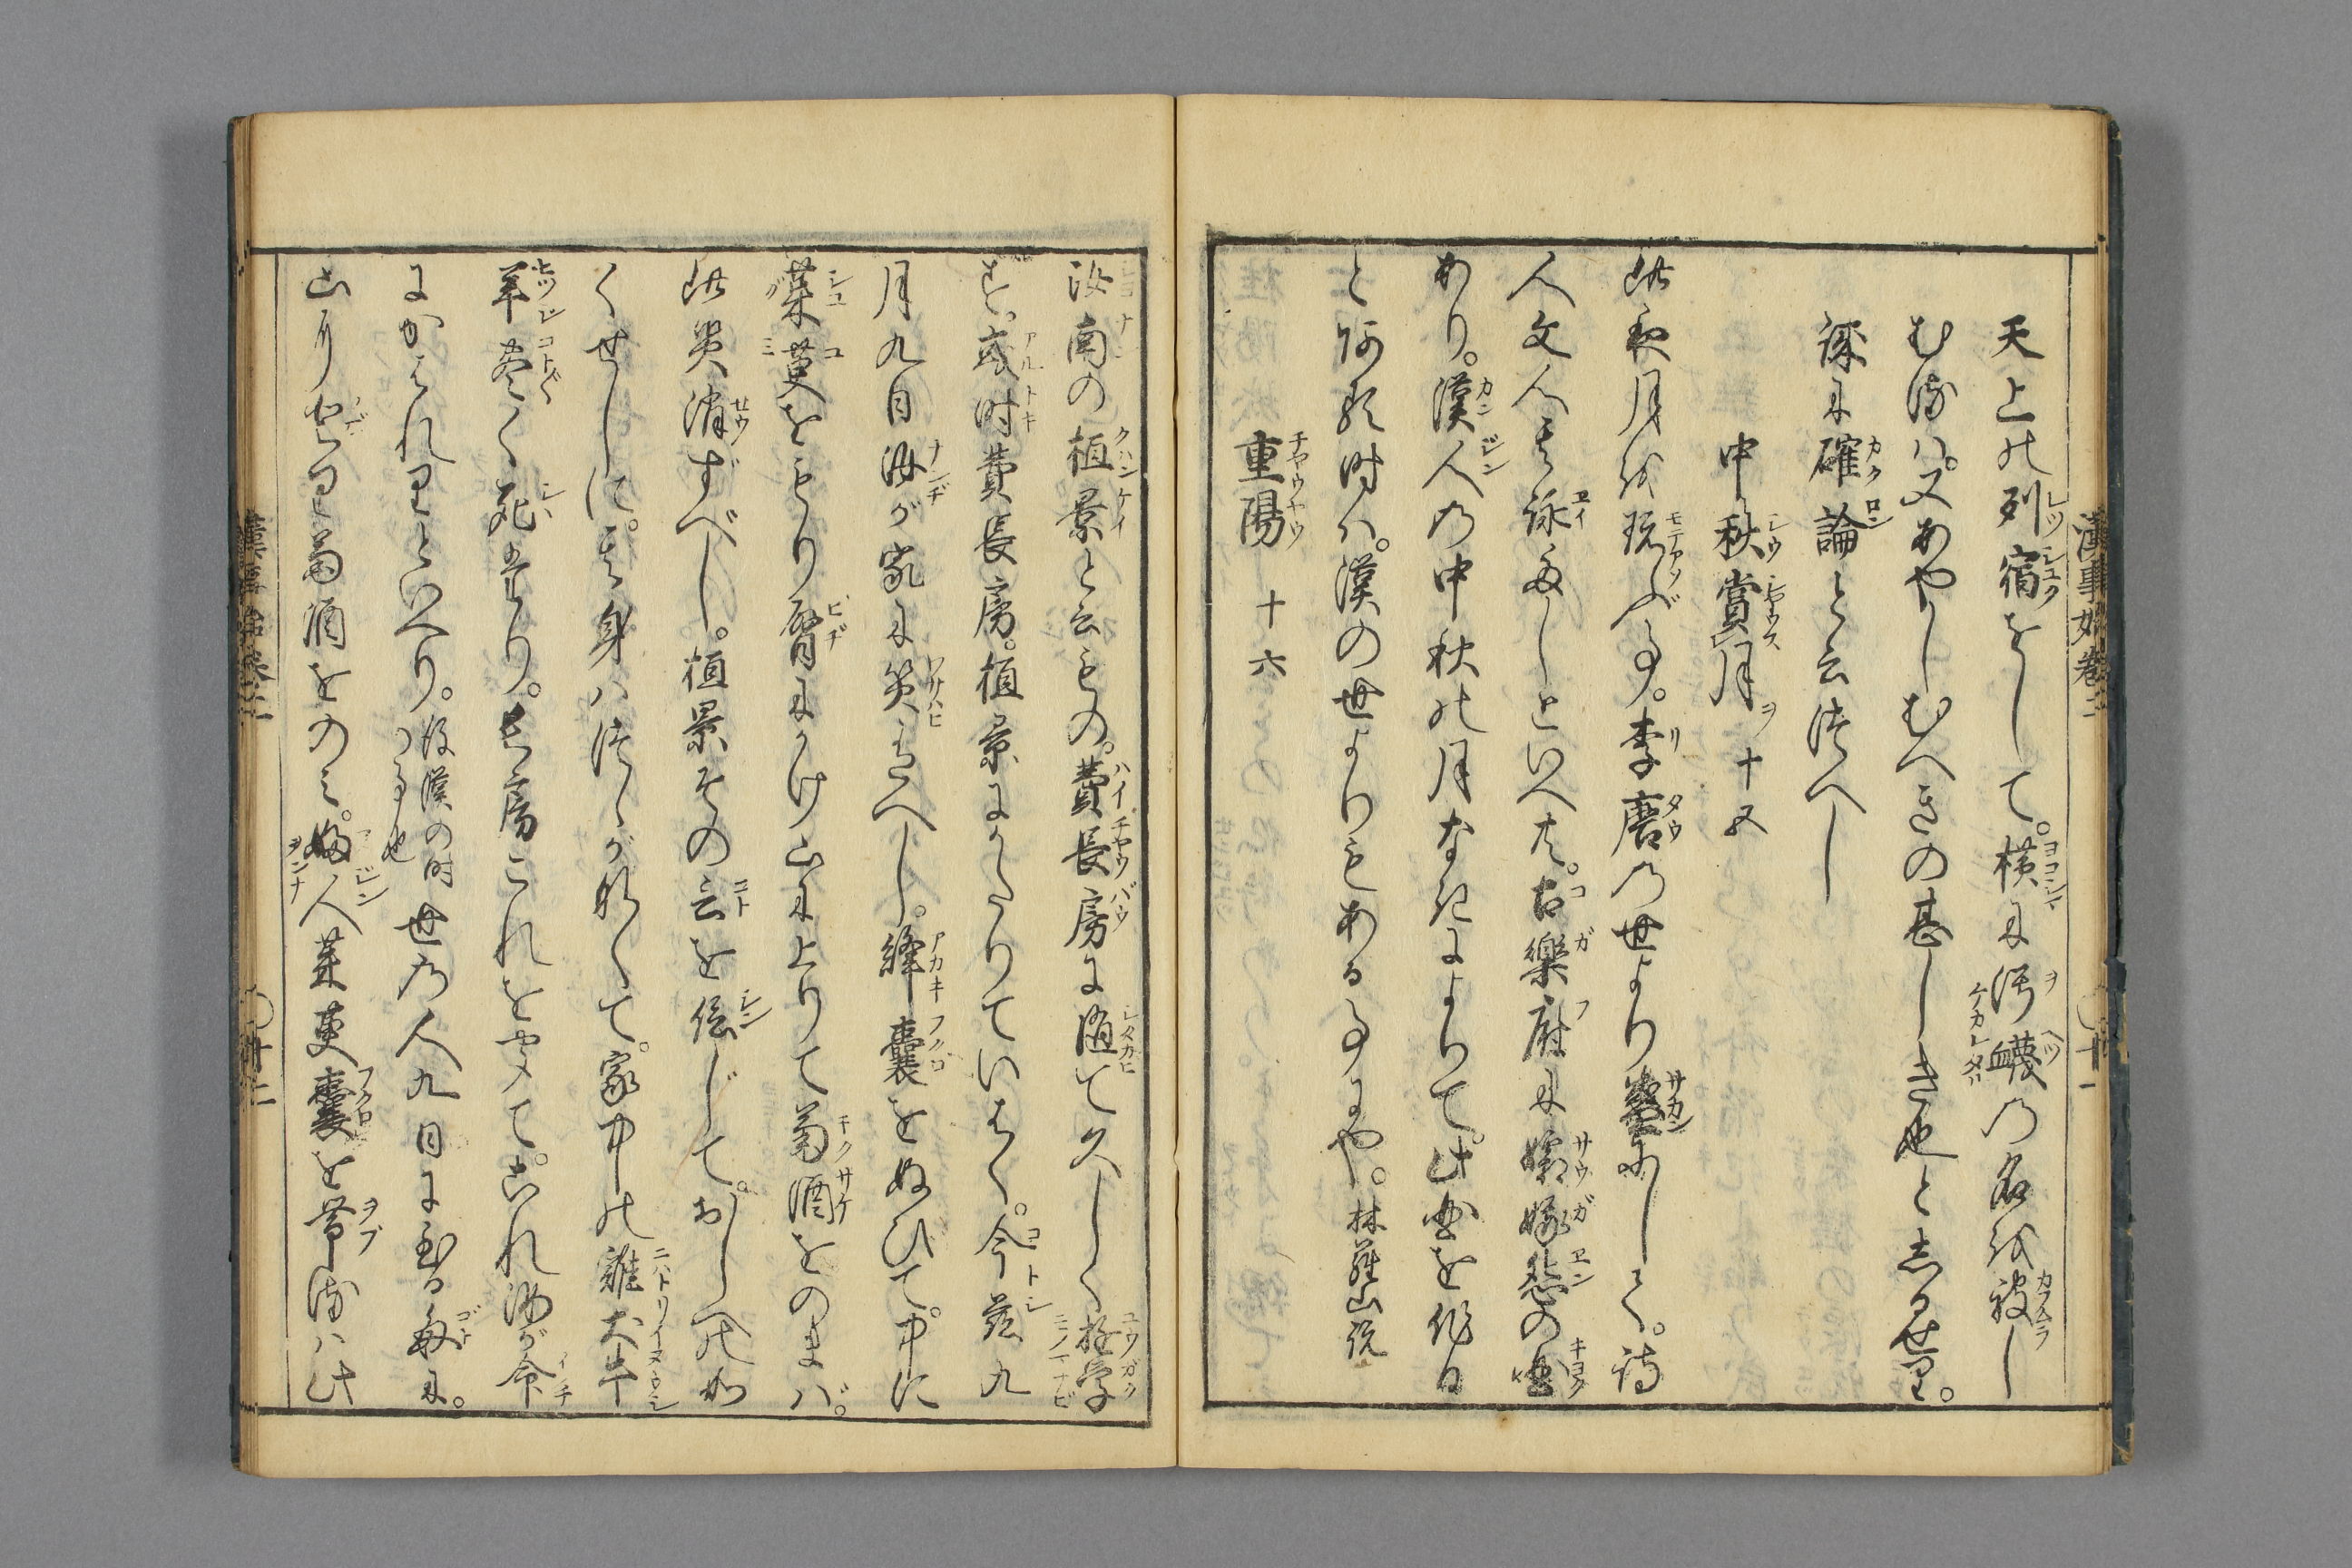 天上の列宿をして。横に汚衊の名を被し
むるハ。又あやしむへきの甚しき也としるせり。
深に確論と云つへし
中秋賞月 十五
此夜月を玩ぶ事。李唐の世より盛にして。詩
人文人其詠多しといへ共。古樂府に孀娥怨の曲
あり。漢人の中秋の月なきによりて。此曲を作る
と
時ハ。漢の世よりもある事にや。林羅山説
重陽 十六
汝南の桓景と云もの。費長房に随て久しく遊学
す。或時費長房。桓景にかたりていはく。今茲九
月九日汝が家に災あるへし。絳囊をぬひて。中に
茱萸をもり臂にかけ山に上りて菊酒をのまバ。
此災消すべし。桓景その言を信じて。おしへの如
くせしに。其身ハつゝがなくて。家中の雞犬牛
羊尽く死せり。長房これを聞て。これ汝が命
にかはれりといへり。後漢の時の事也 世の人九日に至る毎に。
山に登り菊酒をのみ。婦人茱萸囊を帯るハ此
漢事始卷二